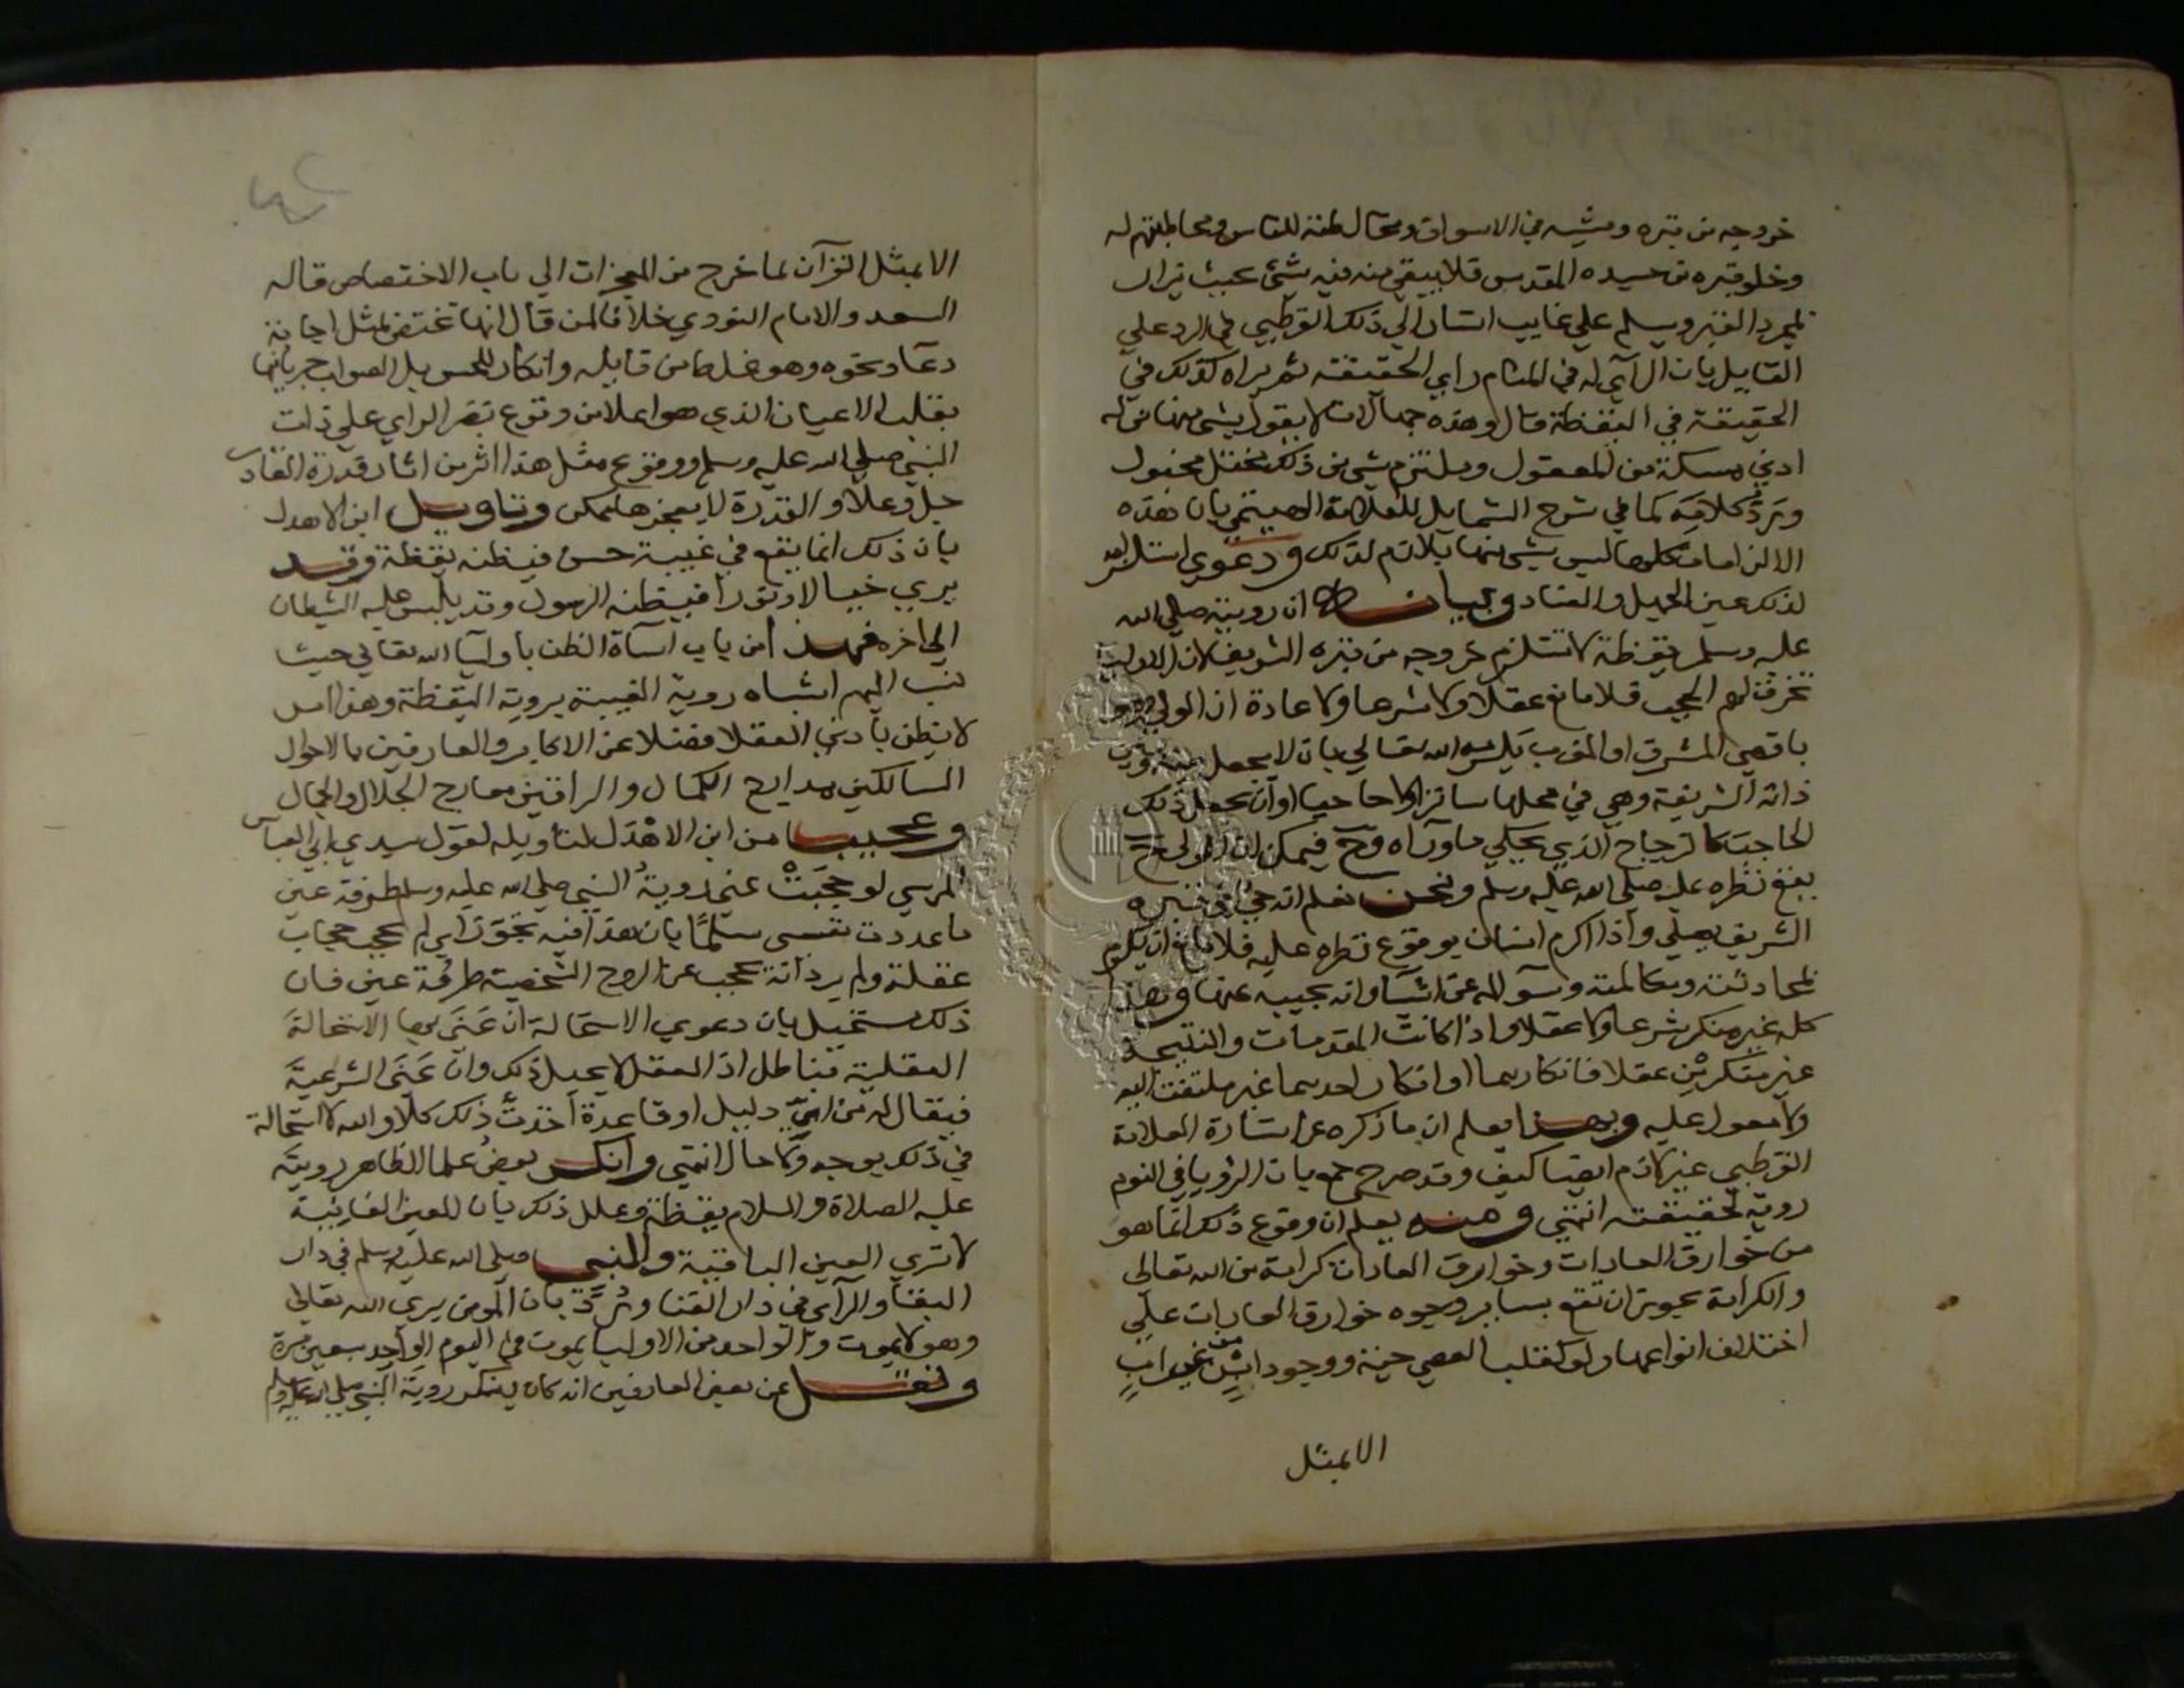 خروجه من قبره ومشيه في الاسواق ومخالطته للناس ومخاطبتهم له
وخلو قبره من جسده المقدس فلا يبقي منه فيه شئ بحيث يزار
مجرد القبر ويسلم علي غايب اشار الي ذلك القرطبي في الرد علي
القايل بان الرآي له في المنام رآي الحقيقته ثم يراه كذلك في
الحقيقة في اليقظة قال وهذه جهالات لا يقول بشي منها من له
ادني مسكة من المعقول وملتزم شي من ذلك مختل مخبول
ويرد كلامه كما في شرح الشمايل للعلامة الهيتمي بان هذه
الالزامات كلها ليس شي منها بلازم لذلك ودعوي استلزامه
لذلك عين الجهل والعناد وبيانه ان رويته صلي الله
عليه وسلم يقظة لا تستلزم خروجه من قبره الشريف لان الاوليا
تخرق لهم الحجب فلا مانع عقلا ولا شرعا ولا عادة ان الولي وهو
باقصي المشرق او المغرب يكرمه الله تعالي بان لا يجعل بينه وبين
ذاته الشريفة وهي في محلها ساترا ولا حاجبا او ان يجعل ذلك
الحاجب كالزجاج الذي يحكي ما ورآه وح فيمكن ان الولي
يقع نظره عليه صلي الله عليه وسلم ونحن نعلم انه حي في قبره
الشريف يصلي واذا اكرم انسان بوقوع نظره عليه فلا مانع ان يكرم
بمحادثته ومكالمته وسواله عن اشيآ وانه يجيبه عنها وهذا
كله غير منكر شرعا ولا عقلا واذا كانت المقدمات والنتيجة
غير منكرين عقلا فانكارهما او انكار احدهما غير ملتفت اليه
ولا معول عليه وبهذا يعلم ان ما ذكره عن اشارة العلامة
القرطبي غير لازم ايضا كيف وقد صرح جمع بان الرؤيا في النوم
روية لحقيقته انتهي ومنه يعلم ان وقوع ذلك انما هو
من خوارق العادات وخوارق العادات كرامة من الله تعالي
والكرامة يجوز ان تقع بساير وجوه خوارق العادات علي
اختلاف انواعها ولو كقلب العصي حية ووجود ابن من غير اب
الا بمثل
الا بمثل القرآن لما خرج من المعجزات الي باب الاختصاص قاله
السعد والامام النووي خلافا لمن قال انها تختص بمثل اجابة
دعآء ونحوه وهو غلط من قايله وانكار للحس بل الصواب جريانها
بقلب الاعيان الذي هو اعلا من وقوع بصر الراي علي ذات
النبي صلي الله عليه وسلم ووقوع مثل هذا اثر من اثار قدرة القادر
جل وعلا والقدرة لا يعجزها ممكن وتاويل ابن الاهدل
بان ذلك انما يقع في غيبة حس فيظنه يقظة وقد
يري خيالا او نورا فيظنه الرسول وقد يلبس عليه الشيطان
الي اخره فهو من باب اسآة الظن باوليآ الله تعالي حيث
نسب اليهم اشتباه روية الغيبة بروية اليقظة وهذا امر
لا يظن بادني العقلا فضلا عن الاكابر والعارفين بالاحوال
السالكين مدارج الكمال والراقين معارج الجلال والجمال
وعجيب من ابن الاهدل لتاويله لقول سيدي ابي العباس
المرسي لو حجبت عني روية النبي صلي الله عليه وسلم طرفة عين
ما عددت نفسي مسلما بان هذا فيه تجوز اي لم يحجب حجاب
غفلة ولم يرد انه يحجب عن الروح الشخصية طرفة عين فان
ذلك مستحيل بان دعوي الاستحالة ان عني بها الاستحالة
العقلية فباطل اذ العقل لا يحيل ذلك وان عني الشرعية
فيقال له من اي دليل او قاعدة اخذت ذلك كلا والله لا استحالة
في ذلك بوجه ولا حال انتهي وانكر بعض علما الظاهر روية
عليه الصلاة والسلام يقظة وعلل ذلك بان العين الفانية
لا تري العين الباقية والنبي صلي الله عليه وسلم في دار
البقآ والرآي في دار الفنا ورد بان المومن يري الله تعالي
وهو لا يموت والواحد من الاوليا يموت في اليوم الواحد سبعين مرة
ونقل عن بعض العارفين انه كان ينكر روية النبي صلي الله عليه وسلم